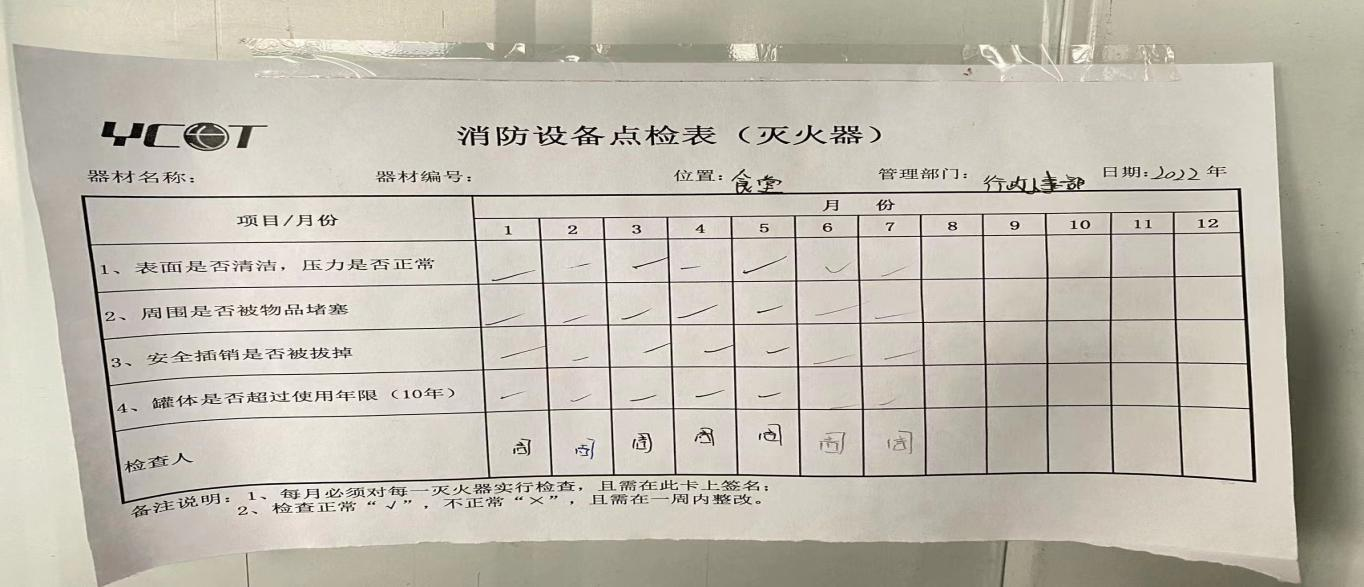 YCOT
消防设备点检表（灭火器）
器材名称： 器材编号： 位置：食堂 管理部门：行政人事部 日期：2022年
项目/月份 月 份
1 2 3 4 5 6 7 8 9 10 11 12
1、表面是否清洁，压力是否正常
2、周围是否被物品堵塞
3、安全插销是否被拔掉
4、罐体是否超过使用年限（10年）
检查人 周 周 周 周 周 周 周
备注说明：1、每月必须对每一灭火器实行检查，且需在此卡上签名；
2、检查正常“√”，不正常“×”，且需在一周内整改。